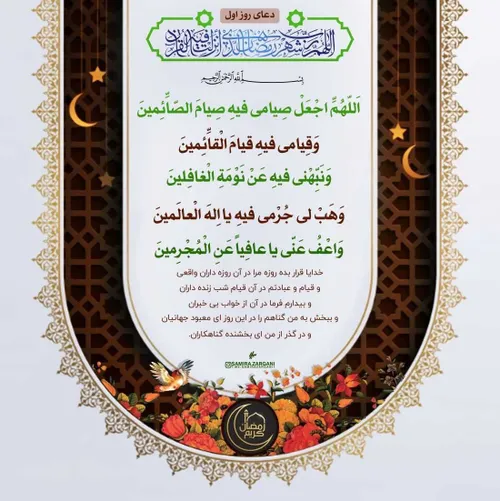 دعای روز اول
اللهم رب شهر رمضان الذی انزلت فیه القرآن
بسم الله الرحمن الرحیم
اَللّهُمَّ اجْعَلْ صِیامی فیهِ صِیامَ الصّائِمینَ
وَقِیامی فیهِ قیامَ الْقائِمینَ
وَنَبِّهْنی فیهِ عَنْ نَوْمَةِ الْغافِلینَ
وَهَبْ لی جُرْمی فیهِ یا اِلهَ الْعالَمینَ
وَاعْفُ عَنّی یا عافِیاً عَنِ الْمُجْرِمینَ
خدایا قرار بده روزه مرا در آن روزه داران واقعی
و قیام و عبادتم در آن قیام شب زنده داران
و بیدارم فرما در آن از خواب بی خبران
و ببخش به من گناهم را در این روز ای معبود جهانیان
و در گذر از من ای بخشنده گناهکاران.
@SAMIRA.ZARGANI
رمضان
کریم